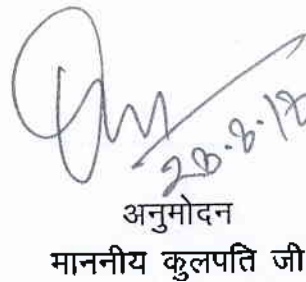 28.8.18
अनुमोदन
माननीय कुलपति जी